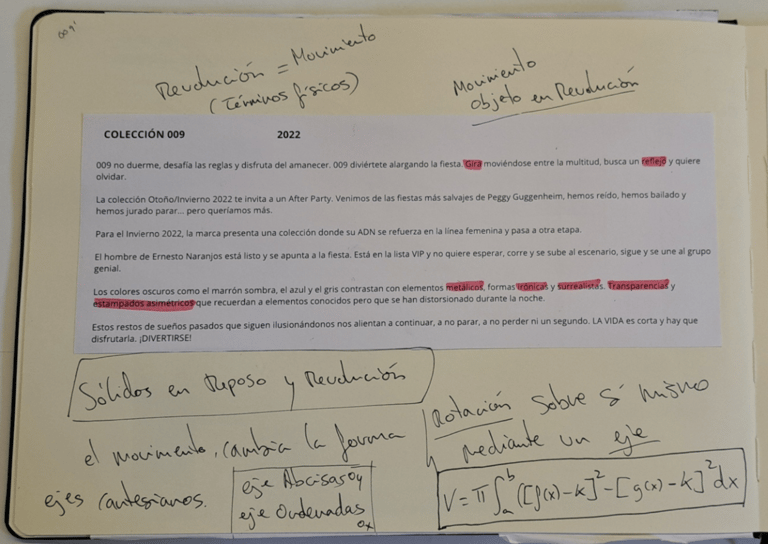 009'
Revolución = Movimiento
(Términos físicos)
Movimiento
objeto en Revolución
COLECCIÓN 009 2022
009 no duerme, desafía las reglas y disfruta del amanecer. 009 diviértete alargando la fiesta. Gira moviéndose entre la multitud, busca un reflejo y quiere
olvidar.
La colección Otoño/Invierno 2022 te invita a un After Party. Venimos de las fiestas más salvajes de Peggy Guggenheim, hemos reído, hemos bailado y
hemos jurado parar... pero queríamos más.
Para el Invierno 2022, la marca presenta una colección donde su ADN se refuerza en la línea femenina y pasa a otra etapa.
El hombre de Ernesto Naranjos está listo y se apunta a la fiesta. Está en la lista VIP y no quiere esperar, corre y se sube al escenario, sigue y se une al grupo
genial.
Los colores oscuros como el marrón sombra, el azul y el gris contrastan con elementos metálicos, formas irónicas y surrealistas. Transparencias y
estampados asimétricos que recuerdan a elementos conocidos pero que se han distorsionado durante la noche.
Estos restos de sueños pasados que siguen ilusionándonos nos alientan a continuar, a no parar, a no perder ni un segundo. LA VIDA es corta y hay que
disfrutarla. ¡DIVERTIRSE!
Sólidos en Reposo y Revolución
el movimento, cambia la forma
ejes cartesianos.
eje Abcisas oy
eje Ordenadas
ox
Rotación sobre sí mismo
mediante un eje
V = π∫ₐᵇ ([f(x)-k]² - [g(x)-k]² dx